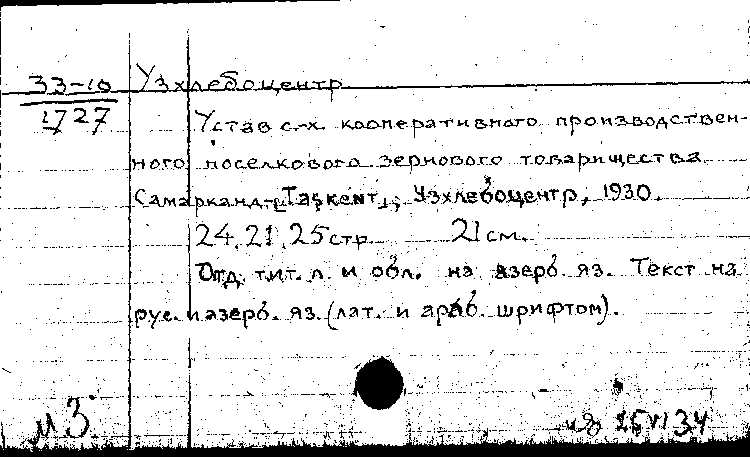 33-10 Узхлебоцентр
1727 Устав с.-х. кооперативного производствен-
ного поселкового зернового товарищества
Самарканд-[Taşkent], Узхлебоцентр, 1930.
24, 21, 25 стр. 21 см.
Отд. тит. л. и обл. на азерб. яз. Текст на
рус. и азерб. яз. (лат. и араб. шрифтом).
м3
25 VI 34